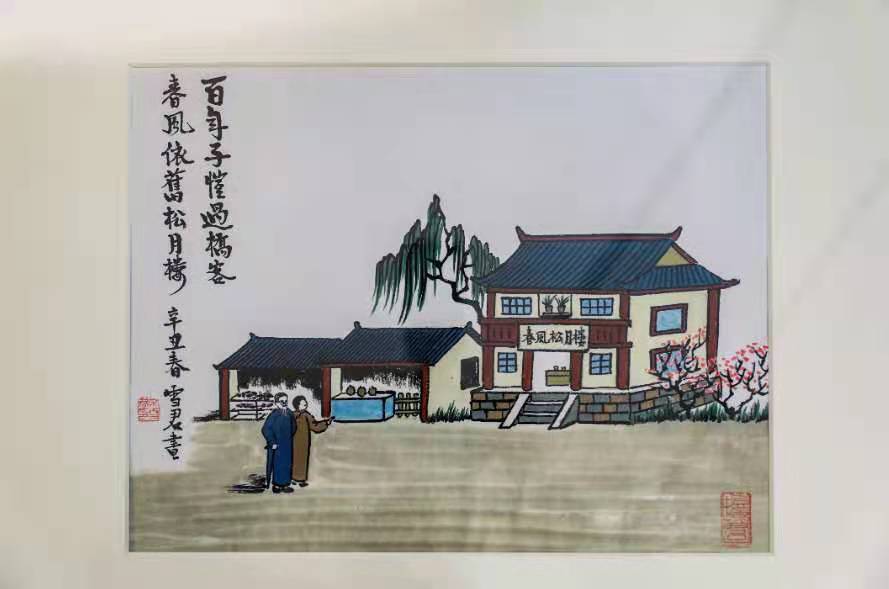 百年子愷過橋客
春風依舊松月樓
辛丑春雪君畫
春風松月樓